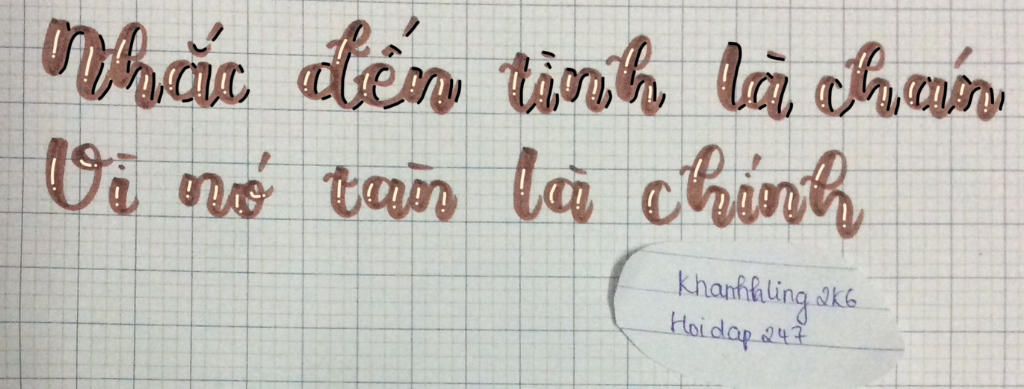 Nhắc đến tình là chán
Vì nó tàn là chính
Khanhhling 2K6
Hoidap 247